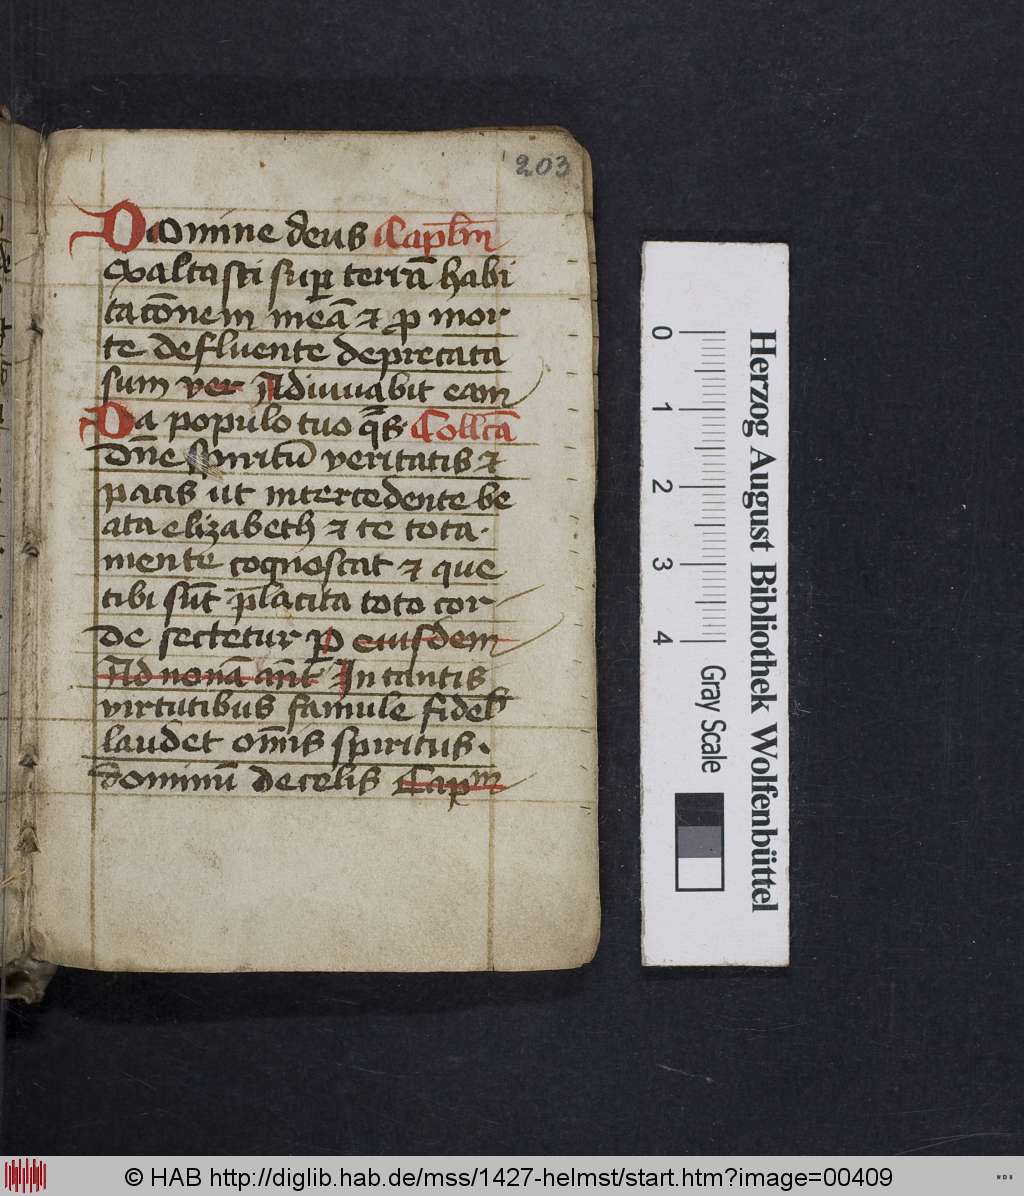 203
Domine deus Capłm
Exaltasti sup terrā habi
tacōnem meā ⁊ p mor
te defluente deprecata
sum ver Adiuuabit eam
Da populo tuo qs Collcā
dn̄e spiritū veritatis ⁊
pacis ut intercedente be
ata elizabeth ⁊ te tota
mente cognoscat ⁊ que
tibi sūt placita toto cor
de sectetur p eiusdem
Ad nonā an̄t In tantis
virtutibus famule fidel
laudet om̄is spiritus.
dominū de celis Capm
Herzog August Bibliothek Wolfenbüttel
0 1 2 3 4 Gray Scale
© HAB http://diglib.hab.de/mss/1427-helmst/start.htm?image=00409